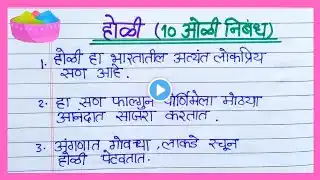 होळी (10 ओळी निबंध)
1. होळी हा भारतातील अत्यंत लोकप्रिय
सण आहे.
2. हा सण फाल्गुन पौर्णिमेला मोठ्या
आनंदात साजरा करतात.
3. अंगणात गोवऱ्या, लाकडे रचून
होळी पेटवतात.